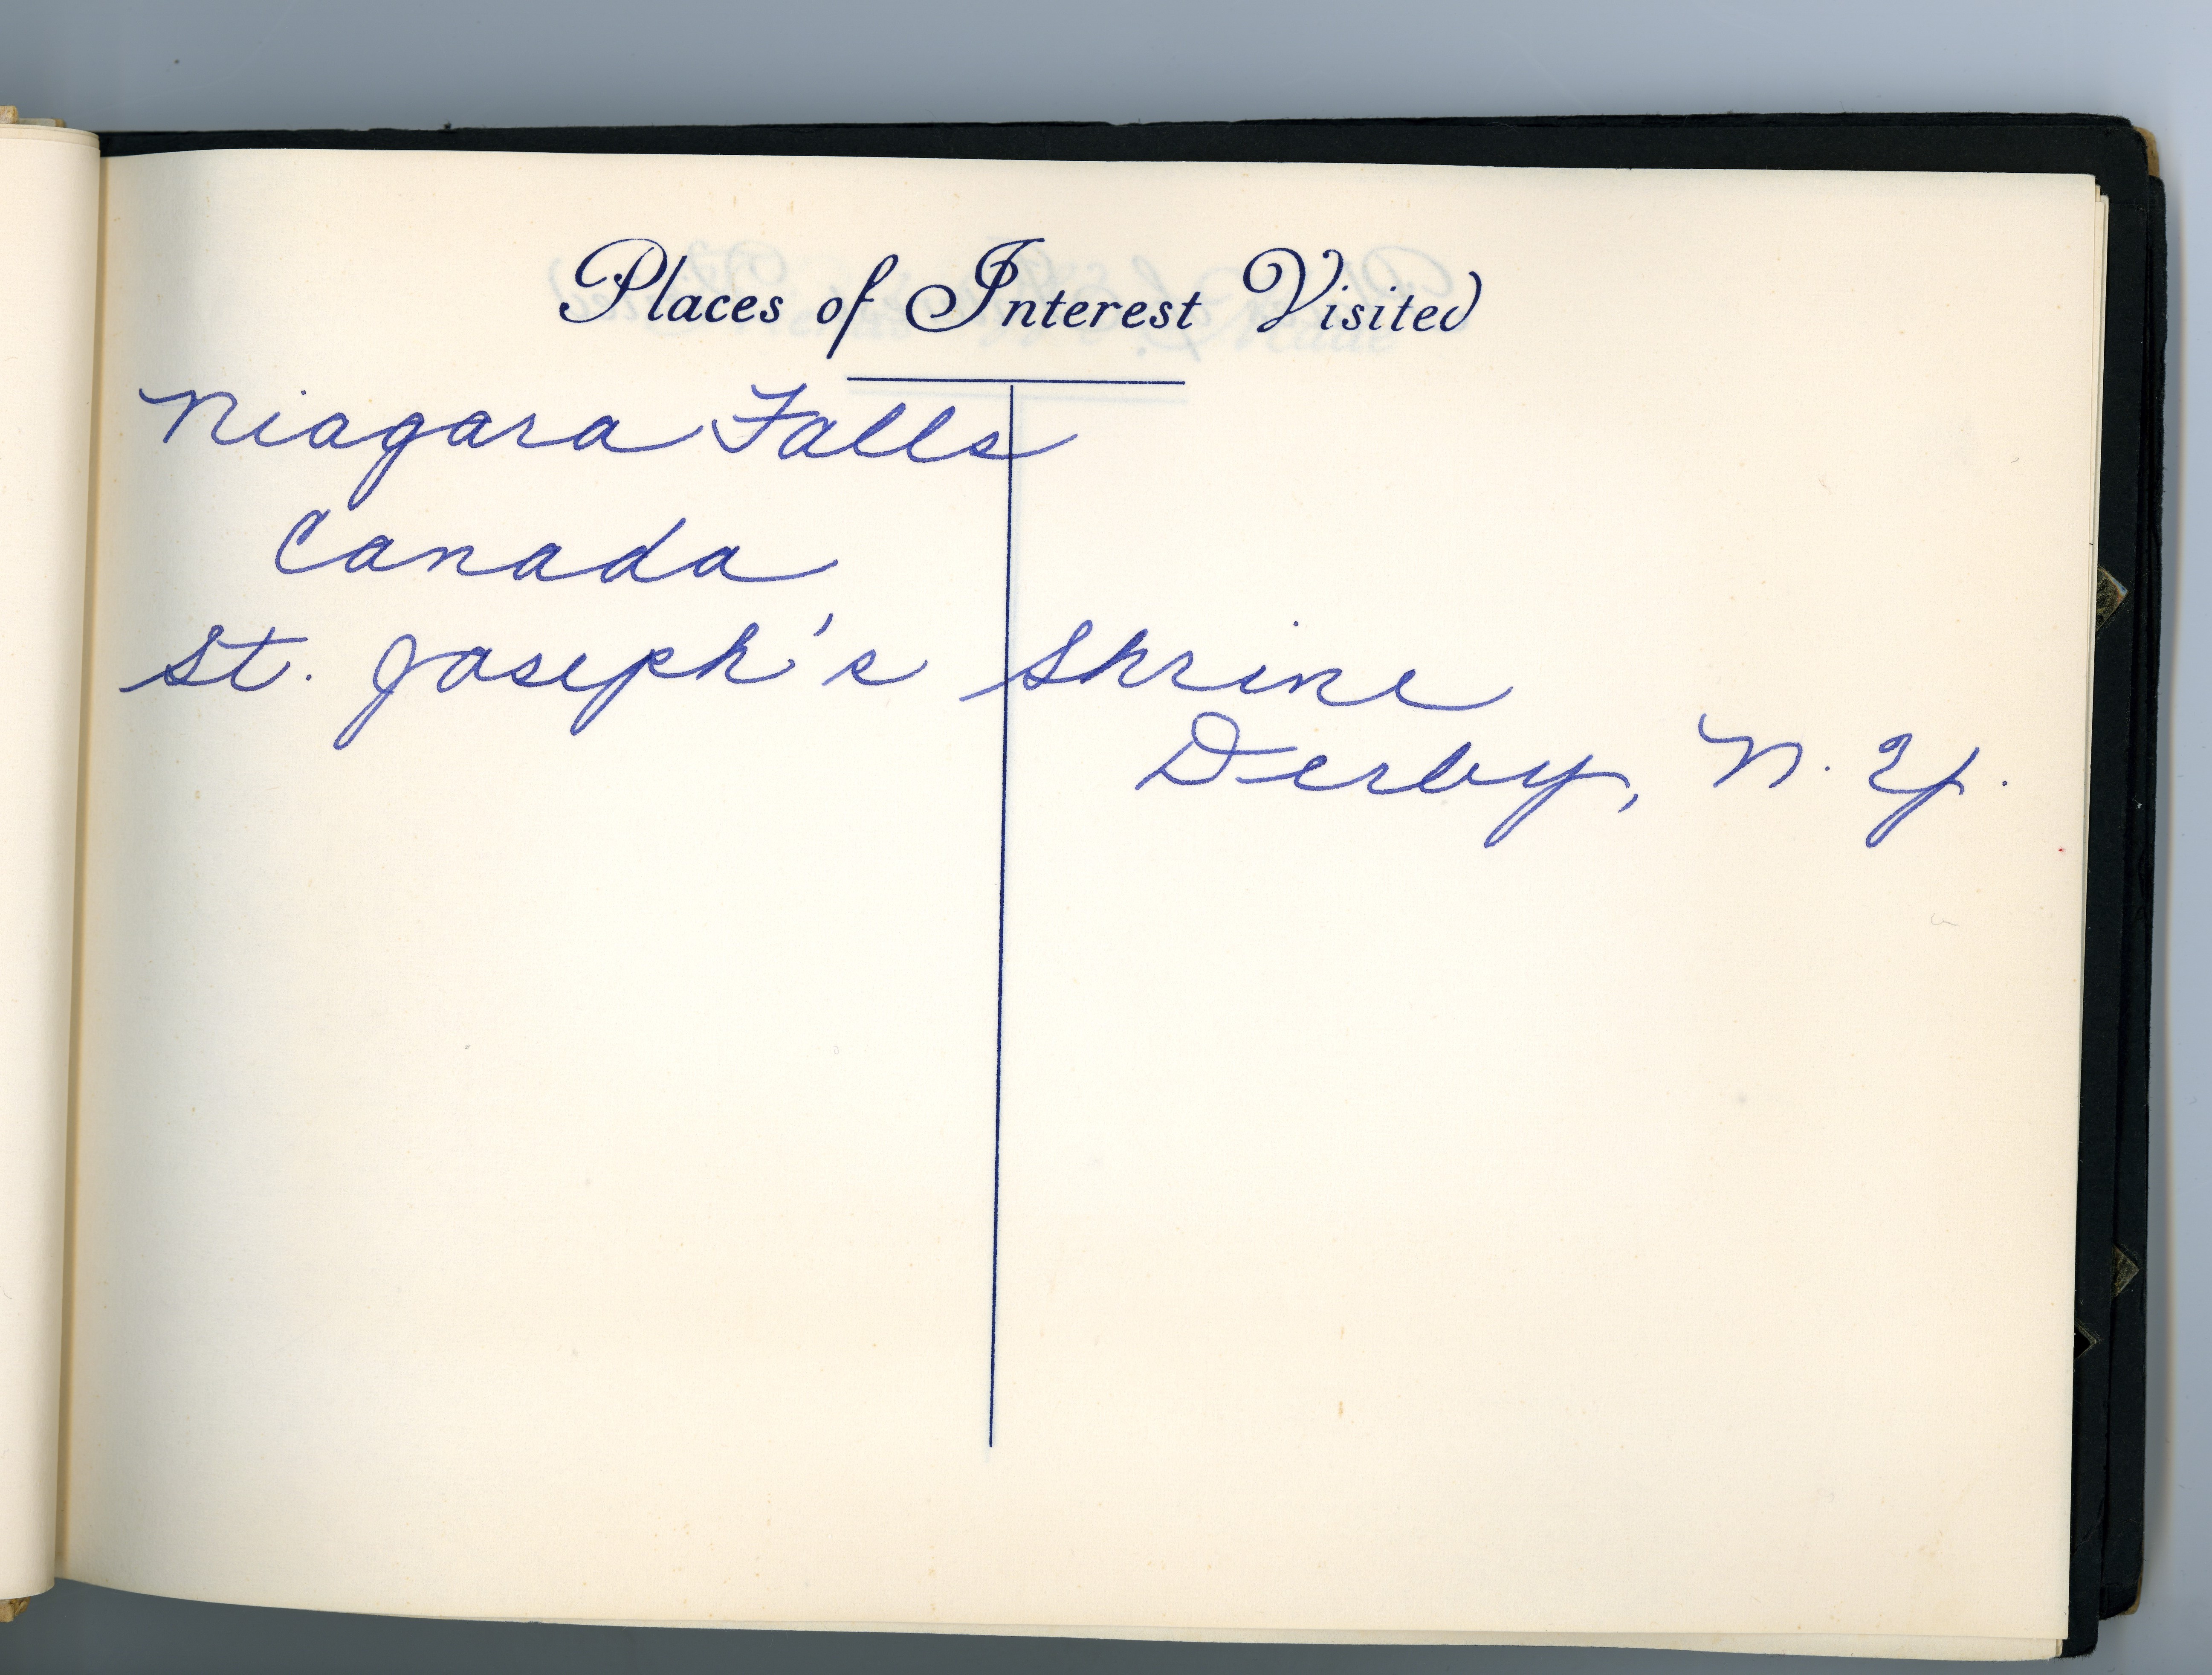 Places of Interest Visited
Niagara Falls
Canada
St. Joseph's Shrine
Derby, N.Y.